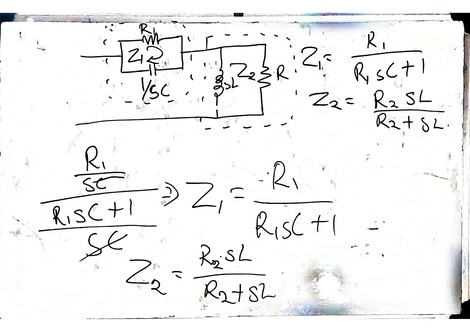 R1
Z1
1/SC
SL
Z2
R
Z1 = R1 / R1SC+1
Z2 = R2 SL / R2+SL
R1/SC / R1SC+1/SC ⇒ Z1 = R1 / R1SC+1
Z2 = R2 SL / R2+SL